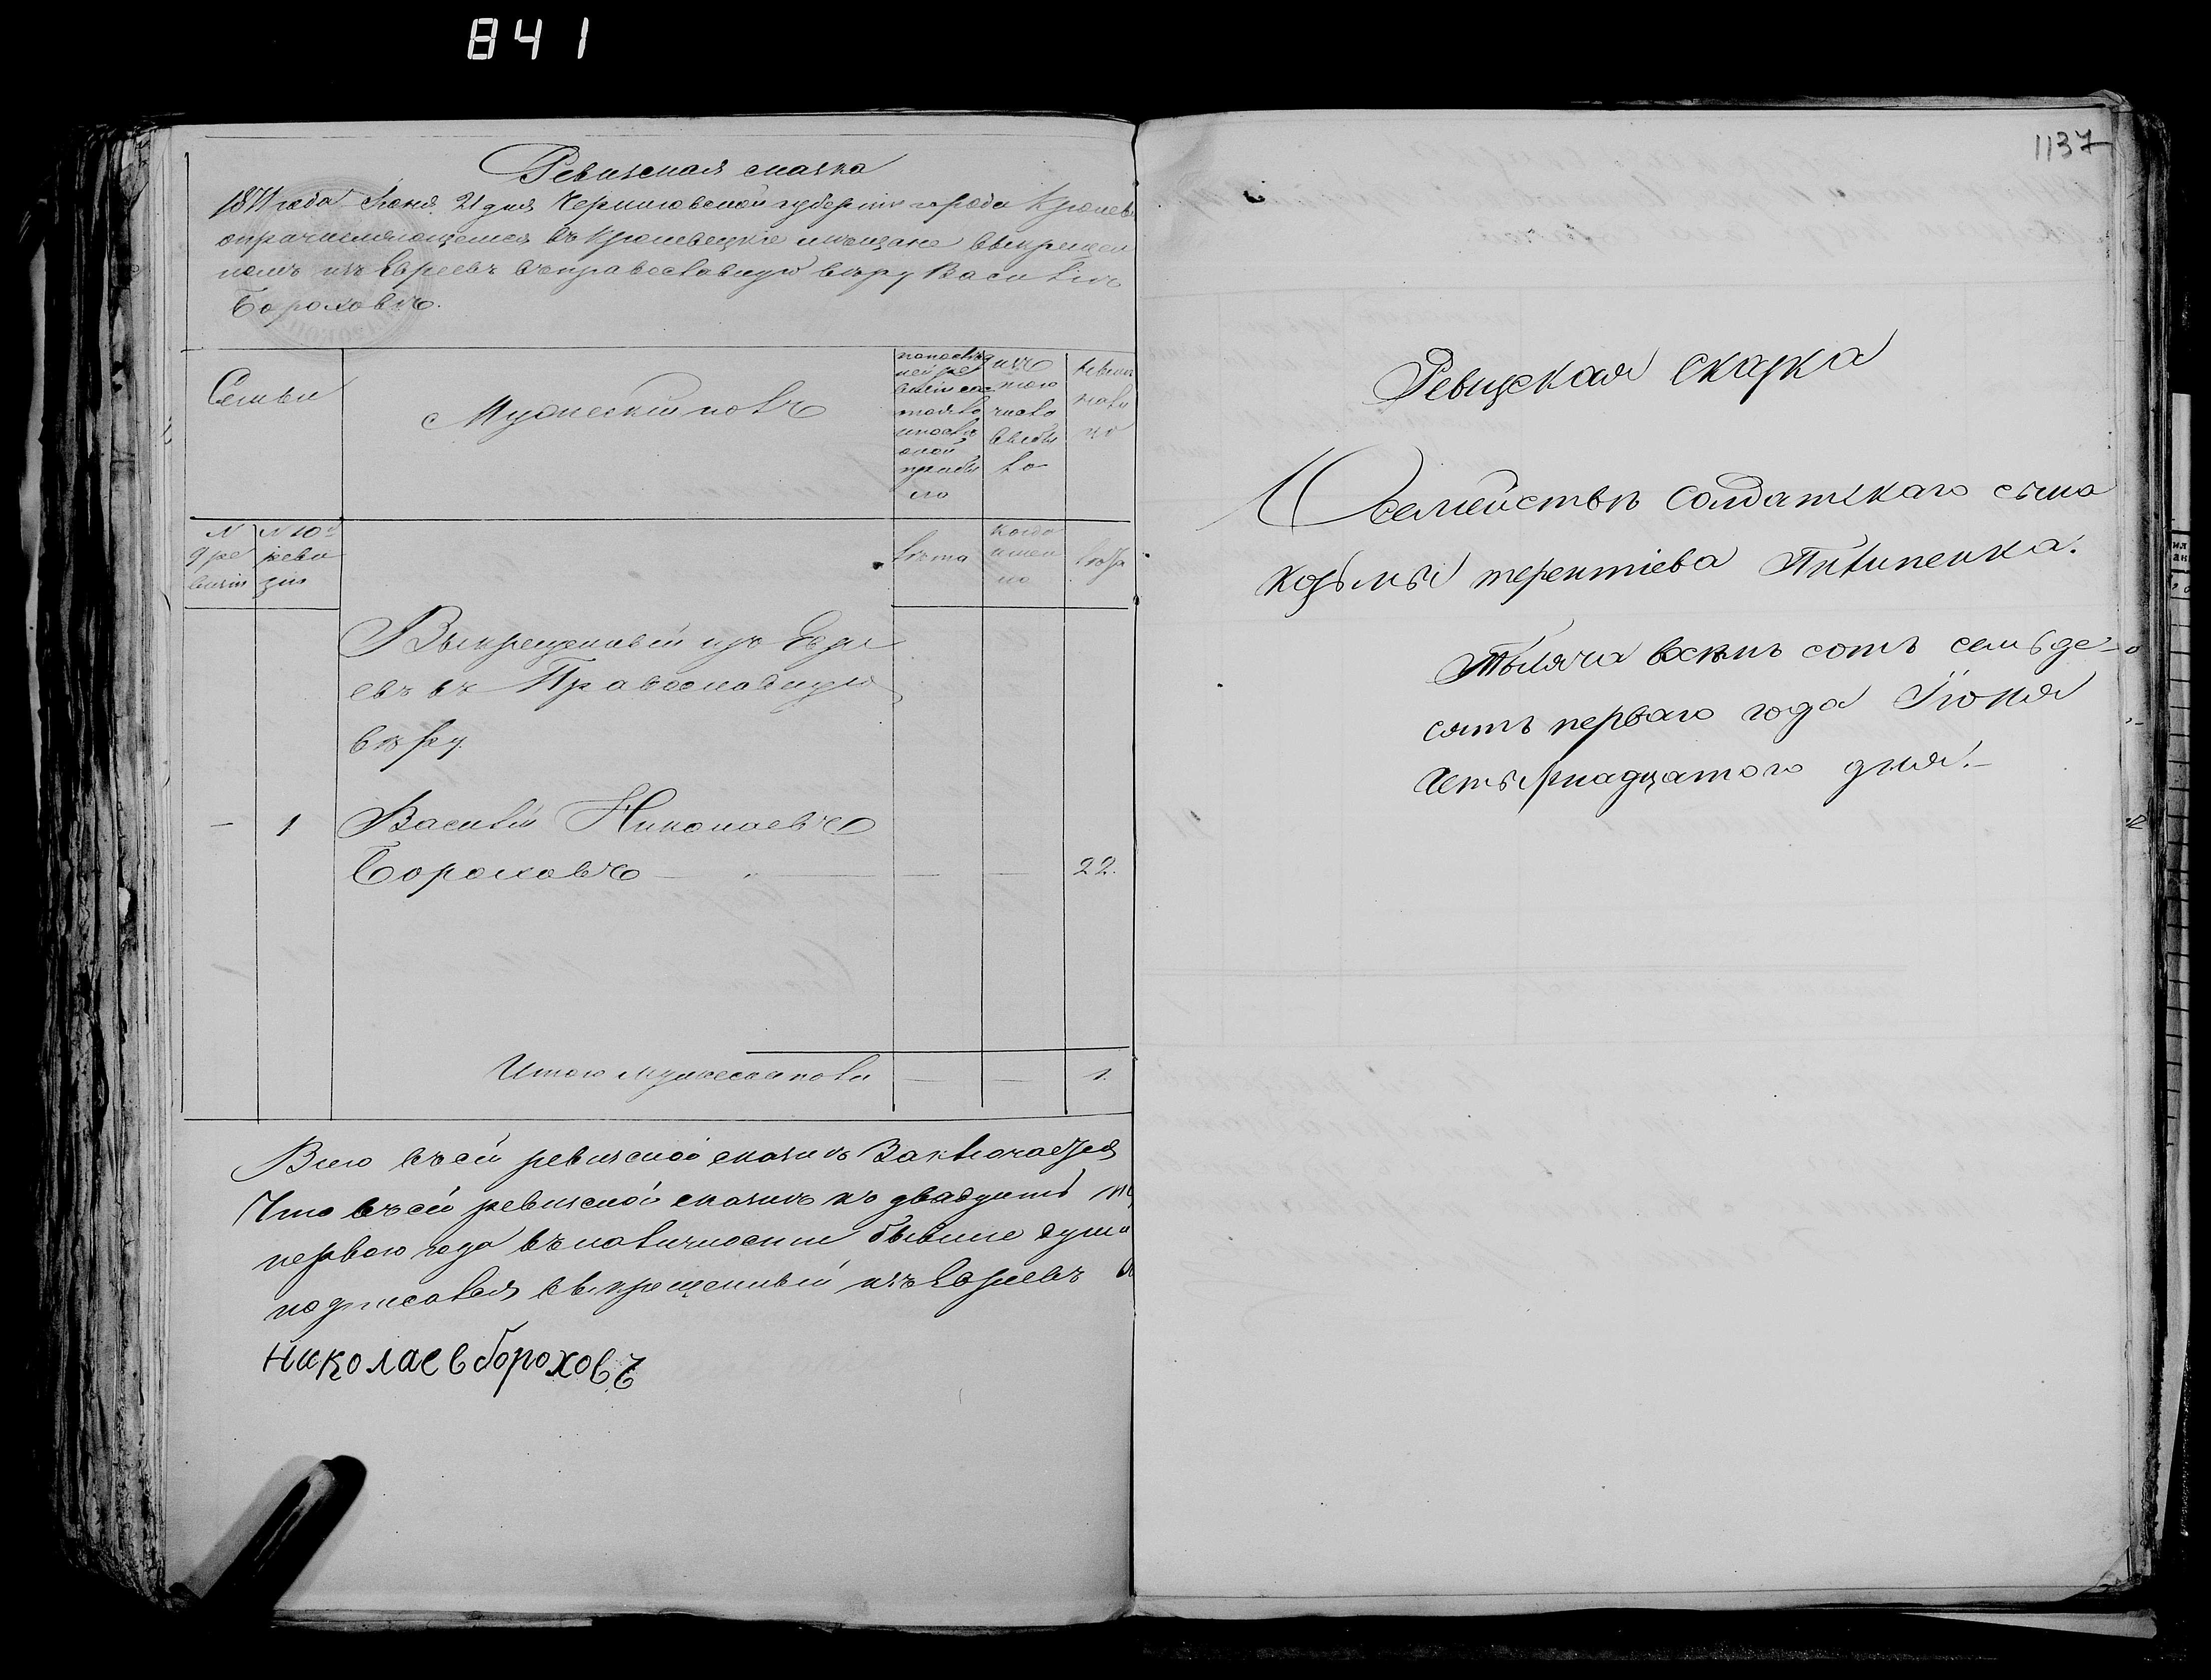 841
Ревизская сказка
1871 года Іюня 21 дня Черниговской губерніи города Кролев
о причисляющемся въ Кролевецкіе мещане выкрещен
номъ изъ Евреевъ въ православную веру Василіе
Бороховъ.
Семьи
Мужескій полъ
по послед
ней ре
визіи со
стояло
и после
оной
прибы
ло
изъ
того
числа
выбы
ло
ныне
нали
цо
N
9 ре
визіи
N 10й
реви
зіи
Лета
Когда
имен
но
Лета
Выкрещенный изъ Евре
евъ въ Православную
веру
—
1
Василій Николаевъ
Бороховъ
—
—
22.
Итого мужеска пола
—
—
1.
Всего въ сей ревизской сказкѣ Заключается
Что въ сей ревизской сказкѣ къ двадцать
первого года въ наличности бывшие души
подписался выкрещенный изъ Евреевъ
николаев бороховъ
1137
Ревизская сказка
О семействѣ солдатскаго сына
Козьмы терентіева Пилипенка.
Тысяча восемь сотъ семьде-
сятъ перваго года Іюня
Четырнадцатого дня.—